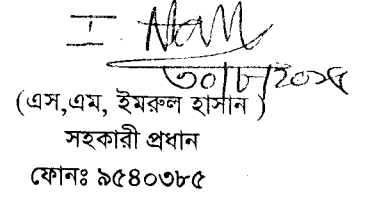 ৩০/৮/২০১৫
(এস,এম, ইমরুল হাসান )
সহকারী প্রধান
ফোনঃ ৯৫৪০৩৮৫